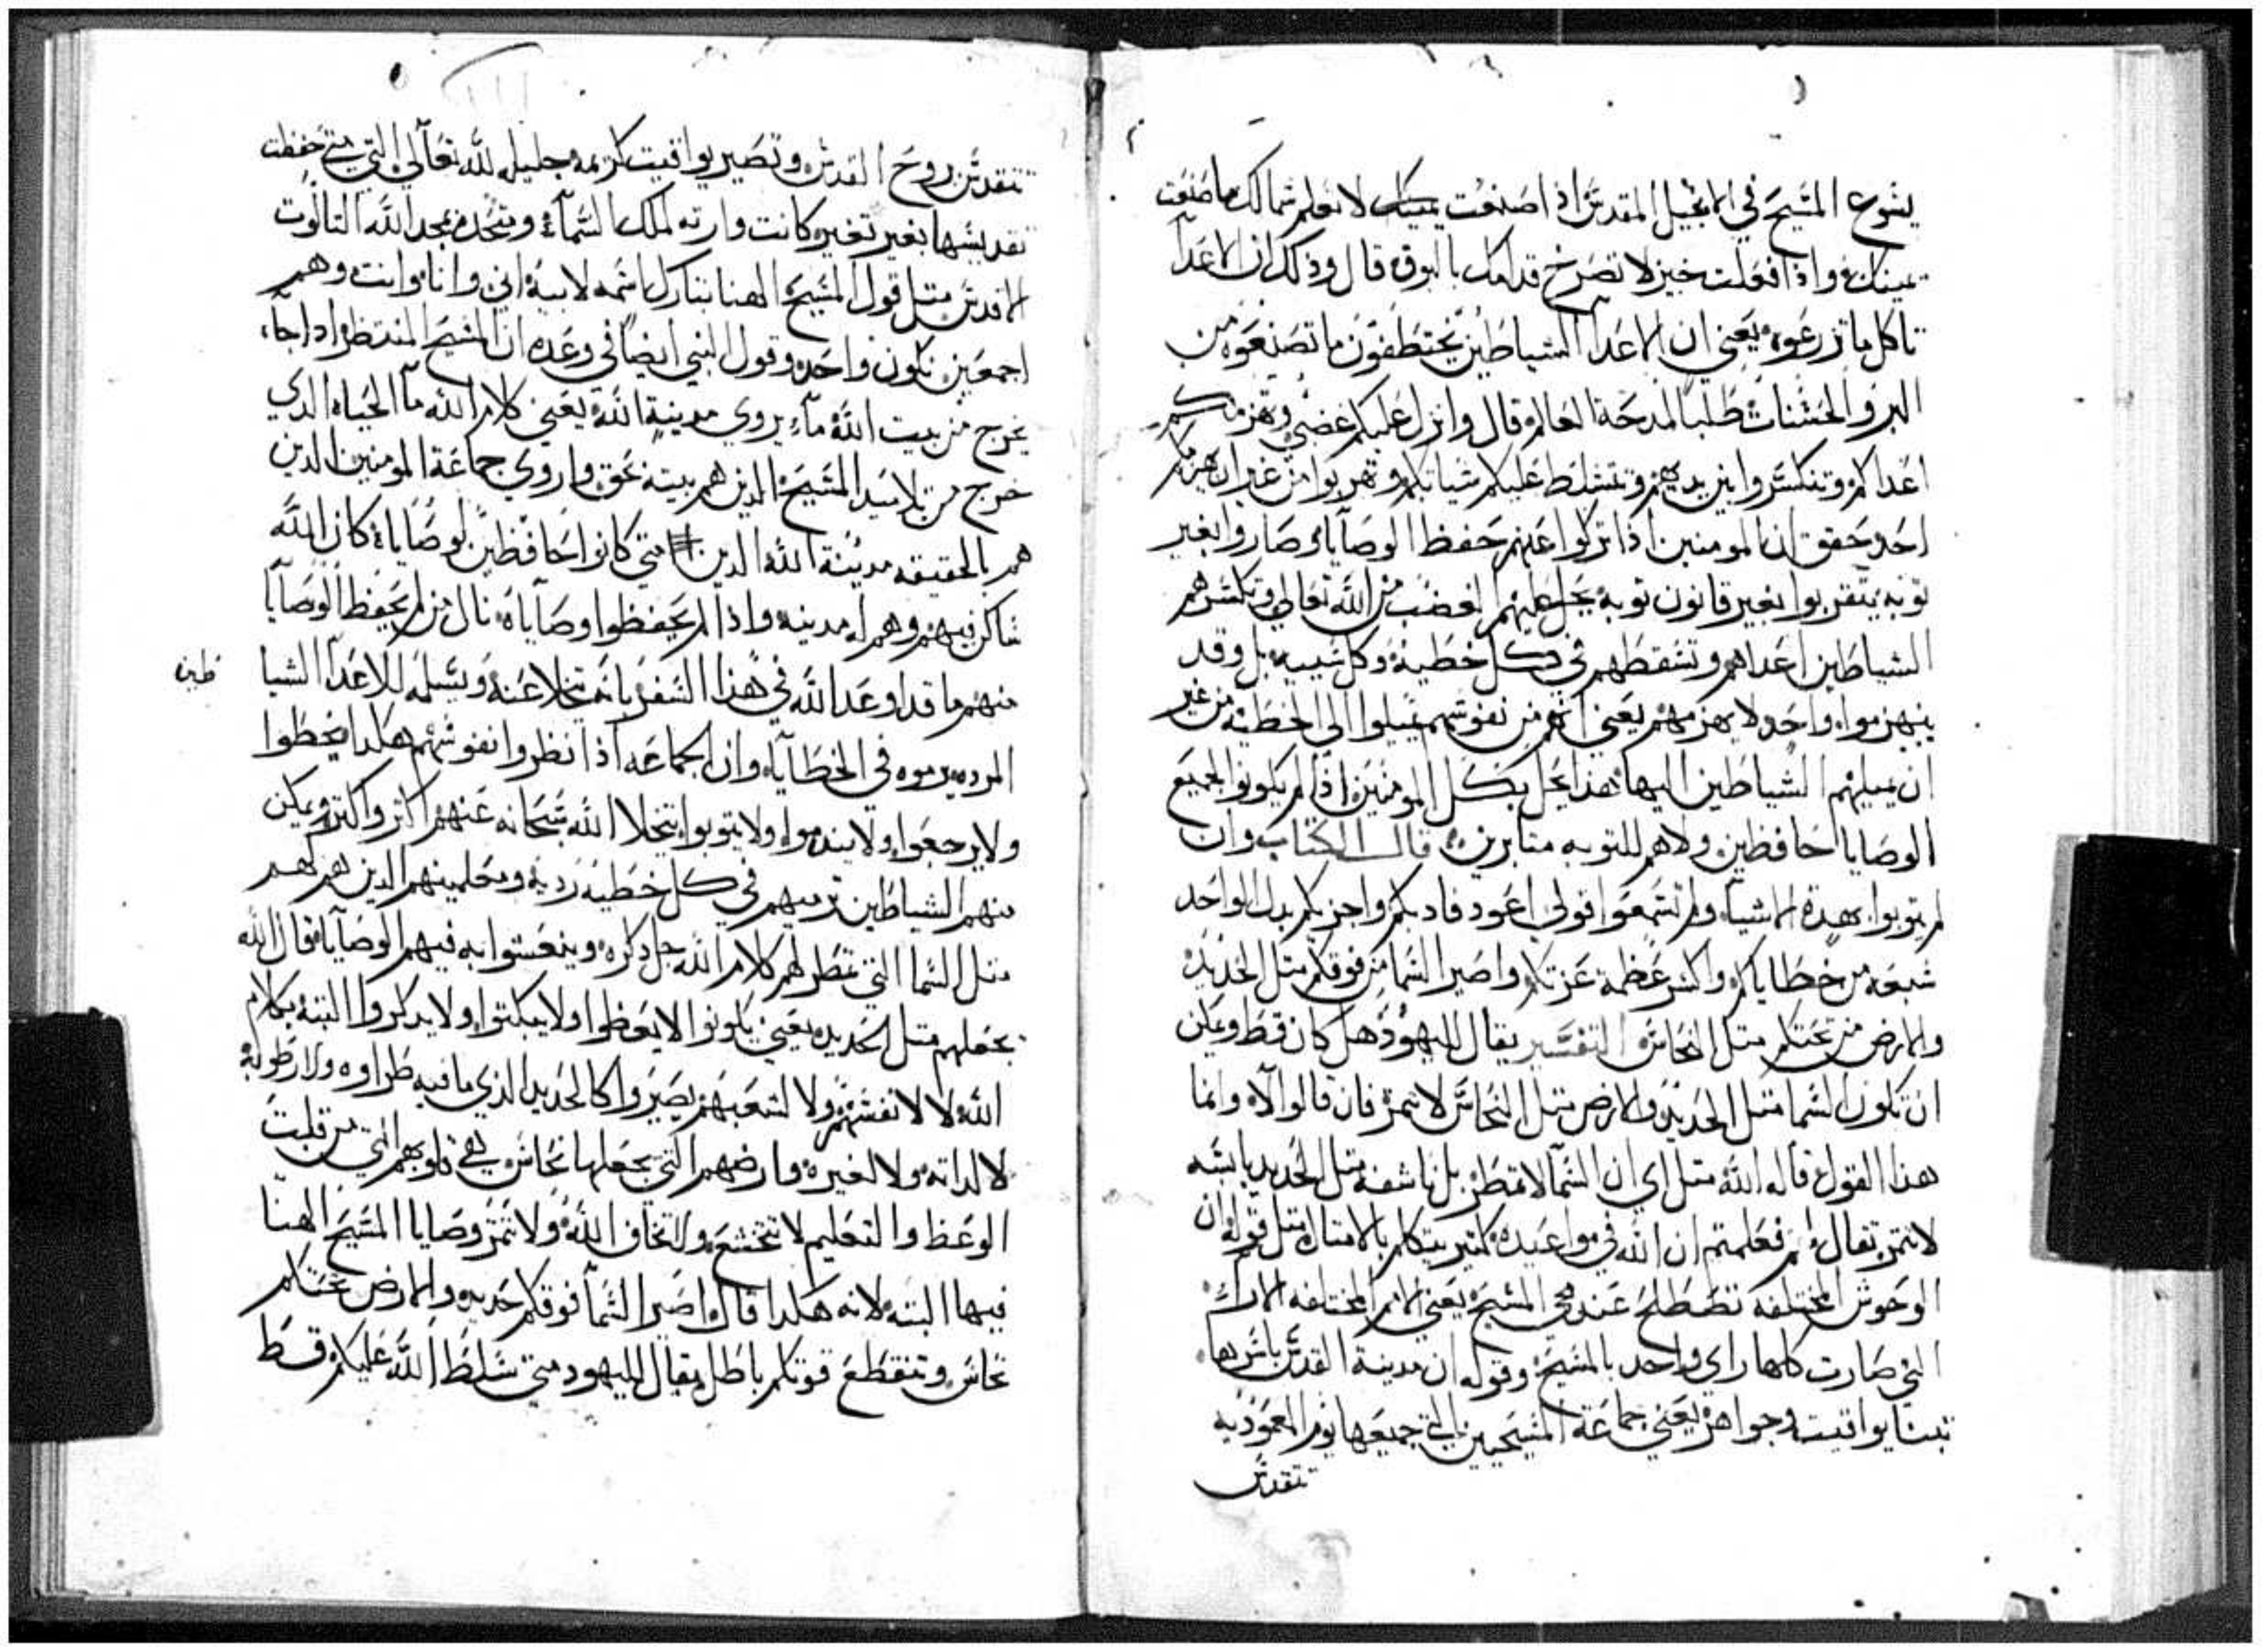 يسوع المسيح في الانجيل المقدس اذا صنعت يمينك لا تعلم شمالك ما صنعت
يمينك واذا فعلت خير لا تصرخ قدامك بالبوق قال وذلك ان الاعدآ
تاكل ما تزرعوه يعني ان الاعدآ الشياطين يختطفون ما تصنعوه من
البر والحسنات طلبا لمدحة العالم قال وانزل عليكم غضبي وتهزمكم
اعداكم وتنكسروا بين يديهم وتتسلط عليكم شياتكم وتهربوا من غير ان يهزمكم
احد وحقق ان المومنين اذا تركوا عنهم حفظ الوصايا وصاروا بغير
توبه يتقربوا بغير قانون توبة يحل عليهم الغضب من الله تعالى وتكسرهم
الشياطين اعداهم وتسقطهم في كل خطية وكل سيية بل وقد
ينهزموا واحد لا يهزمهم يعني انهم من نفوسهم يميلوا الى الخطية من غير
ان يميلهم الشياطين اليها هذا يحل بكل المومنين اذا لم يكونوا لجميع
الوصايا حافظين ولاهم للتوبه متابرين قال الكتاب وان
لم يتوبوا بهدة الاشيآ ولم تسمعوا قولي اعود فادبكم واجزيكم بدل الواحد
سبعه من خطاياكم واكسر عظمة عزتكم واصير السما من فوقكم متل الحديد
والارض من تحتكم متل النحاس التفسير يقال لليهود هل كان قط ويمكن
ان تكون السما متل الحديد والارض متل النحاس لا تتمر فان قالوا لآ وانما
هذا القول قاله الله متل اي ان السمآ لا تمطر بل ناشفه متل الحديد يابسه
لا تتمر يقال لهم فعلمتم ان الله في مواعيده كتير يتكلم بالامتال متل قوله ان
الوحوش المختلفه تصطلح عند مجي المسيح يعني الامم المختلفه الارآ
التي صارت كلها راي واحد بالمسيح وقوله ان مدينة القدس باسرها
تبنا يواقيت وجواهر يعني جماعة المسيحيين التي جميعها يوم المعموديه
تتقدس
تتقدس بروح القدس وتصير يواقيت كريمه جليله لله تعالى التي متى حفظت
تقديسها بغير تغير كانت وارته لملك السمآء وتتحد بمجد الله التالوت
الاقدس متل قول المسيح الهنا تبارك اسمه لابيه اني وانا وانت وهم
اجمعين نكون واحد وقول النبي ايضا في وعده ان المسيح المنتظر اداجآء
يخرج من بيت الله مآء يروي مدينة الله يعني كلام الله مآ الحياه الدي
خرج من تلاميد المسيح الدين هم بيته بحق واروي جماعة المومنين الدين
هم بالحقيقه مدينة الله الدين متى كانوا حافظين لوصاياه كان الله
ساكن فيهم وهم له مدينه واذا لم يحفظوا وصآياه نال من لم يحفظ الوصآيا
منهم ما قد اوعد الله في هذا السفر بانه يتخلا عنه ويسلمه للاعدآ الشيا
طين
المرده يرموه في الخطآيا وان الجماعه اذا نظروا نفوسهم هكدا يخطوا
ولا يرجعوا ولا يندموا ولا يتوبوا يتخلا الله سبحانه عنهم اكتر واكتر ويمكن
منهم الشياطين ترميهم في كل خطية ردية ومعلمينهم الدين هم لهم
متل السما التي تمطر لهم كلام الله جل دكره وينعشوا به فيهم الوصآيا قال الله
يجعلهم متل الحديد يعني يكونوا لا يعظوا ولا يبكتوا ولا يدكروا البتة بكلام
الله لا لانفسهم ولا لشعبهم يصيروا كالحديد الذي ما فيه طراوه ولا رطوبة
لا لداته ولا لغيره وارضهم التي يجعلها نحاس هي قلوبهم التي من قلت
الوعظ والتعليم لا تخشع ولا تخاف الله ولا تتمر وصايا المسيح الهنا
فيها البتة لانه هكدا قال اصير السمآ فوقكم حديد والارض تحتكم
نحاس وتنقطع قوتكم باطل يقال لليهود متى سلط الله عليكم قط